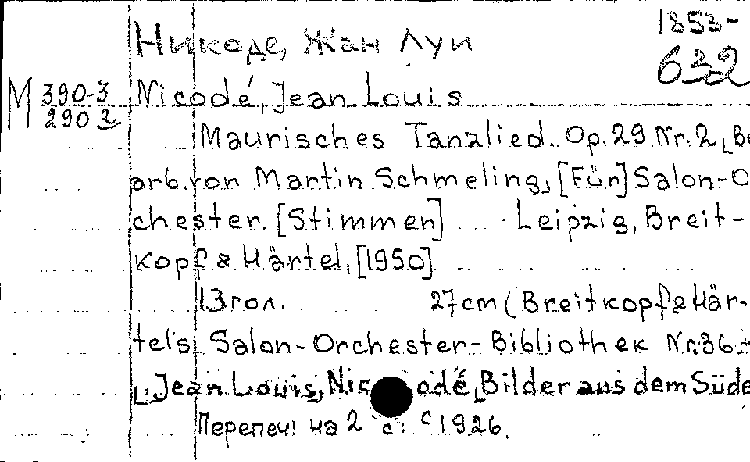 1853-
Никоде, Жан Луи
632
М 390-3
2902
Nicodé, Jean Louis
Maurisches Tanzlied. Op. 29 Nr. 2,
arb. von Martin Schmeling, [Für] Salon-O
chester. [Stimmen] Leipzig, Breit-
kopf & Härtel, [1950]
13 гол. 27 cm (Breitkopf & Här-
tels Salon-Orchester-Bibliothek Nr. 36.
Jean Louis, Nicodé, Bilder aus dem Süde
Перепеч. на 2 с. c 1926.